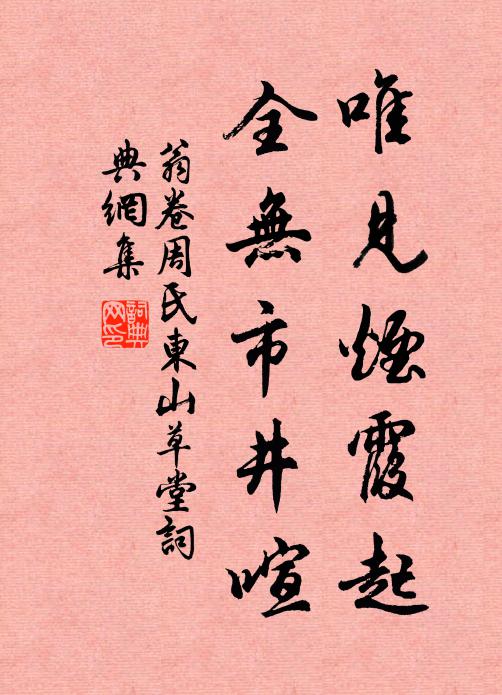 唯見煙霞起
全無市井喧
翁卷周氏東山草堂詞
典網集
詞典網印